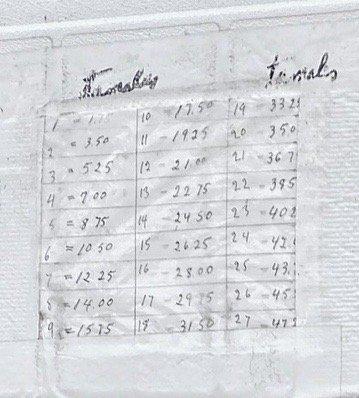 Tamales tamales
1 = 1.75 10 - 17.50 19 - 33 25
2 = 3.50 11 - 19 25 20 - 350
3 = 5 25 12 - 21 00 21 - 36 7
4 = 7 00 13 - 22 75 22 - 385
5 = 8 75 14 - 24 50 23 - 402
6 = 10 50 15 - 26 25 24 - 42
7 = 12 25 16 - 28 00 25 - 43.
8 = 14.00 17 - 29 75 26 - 45
9 = 15 75 18 - 31 50 27 - 47